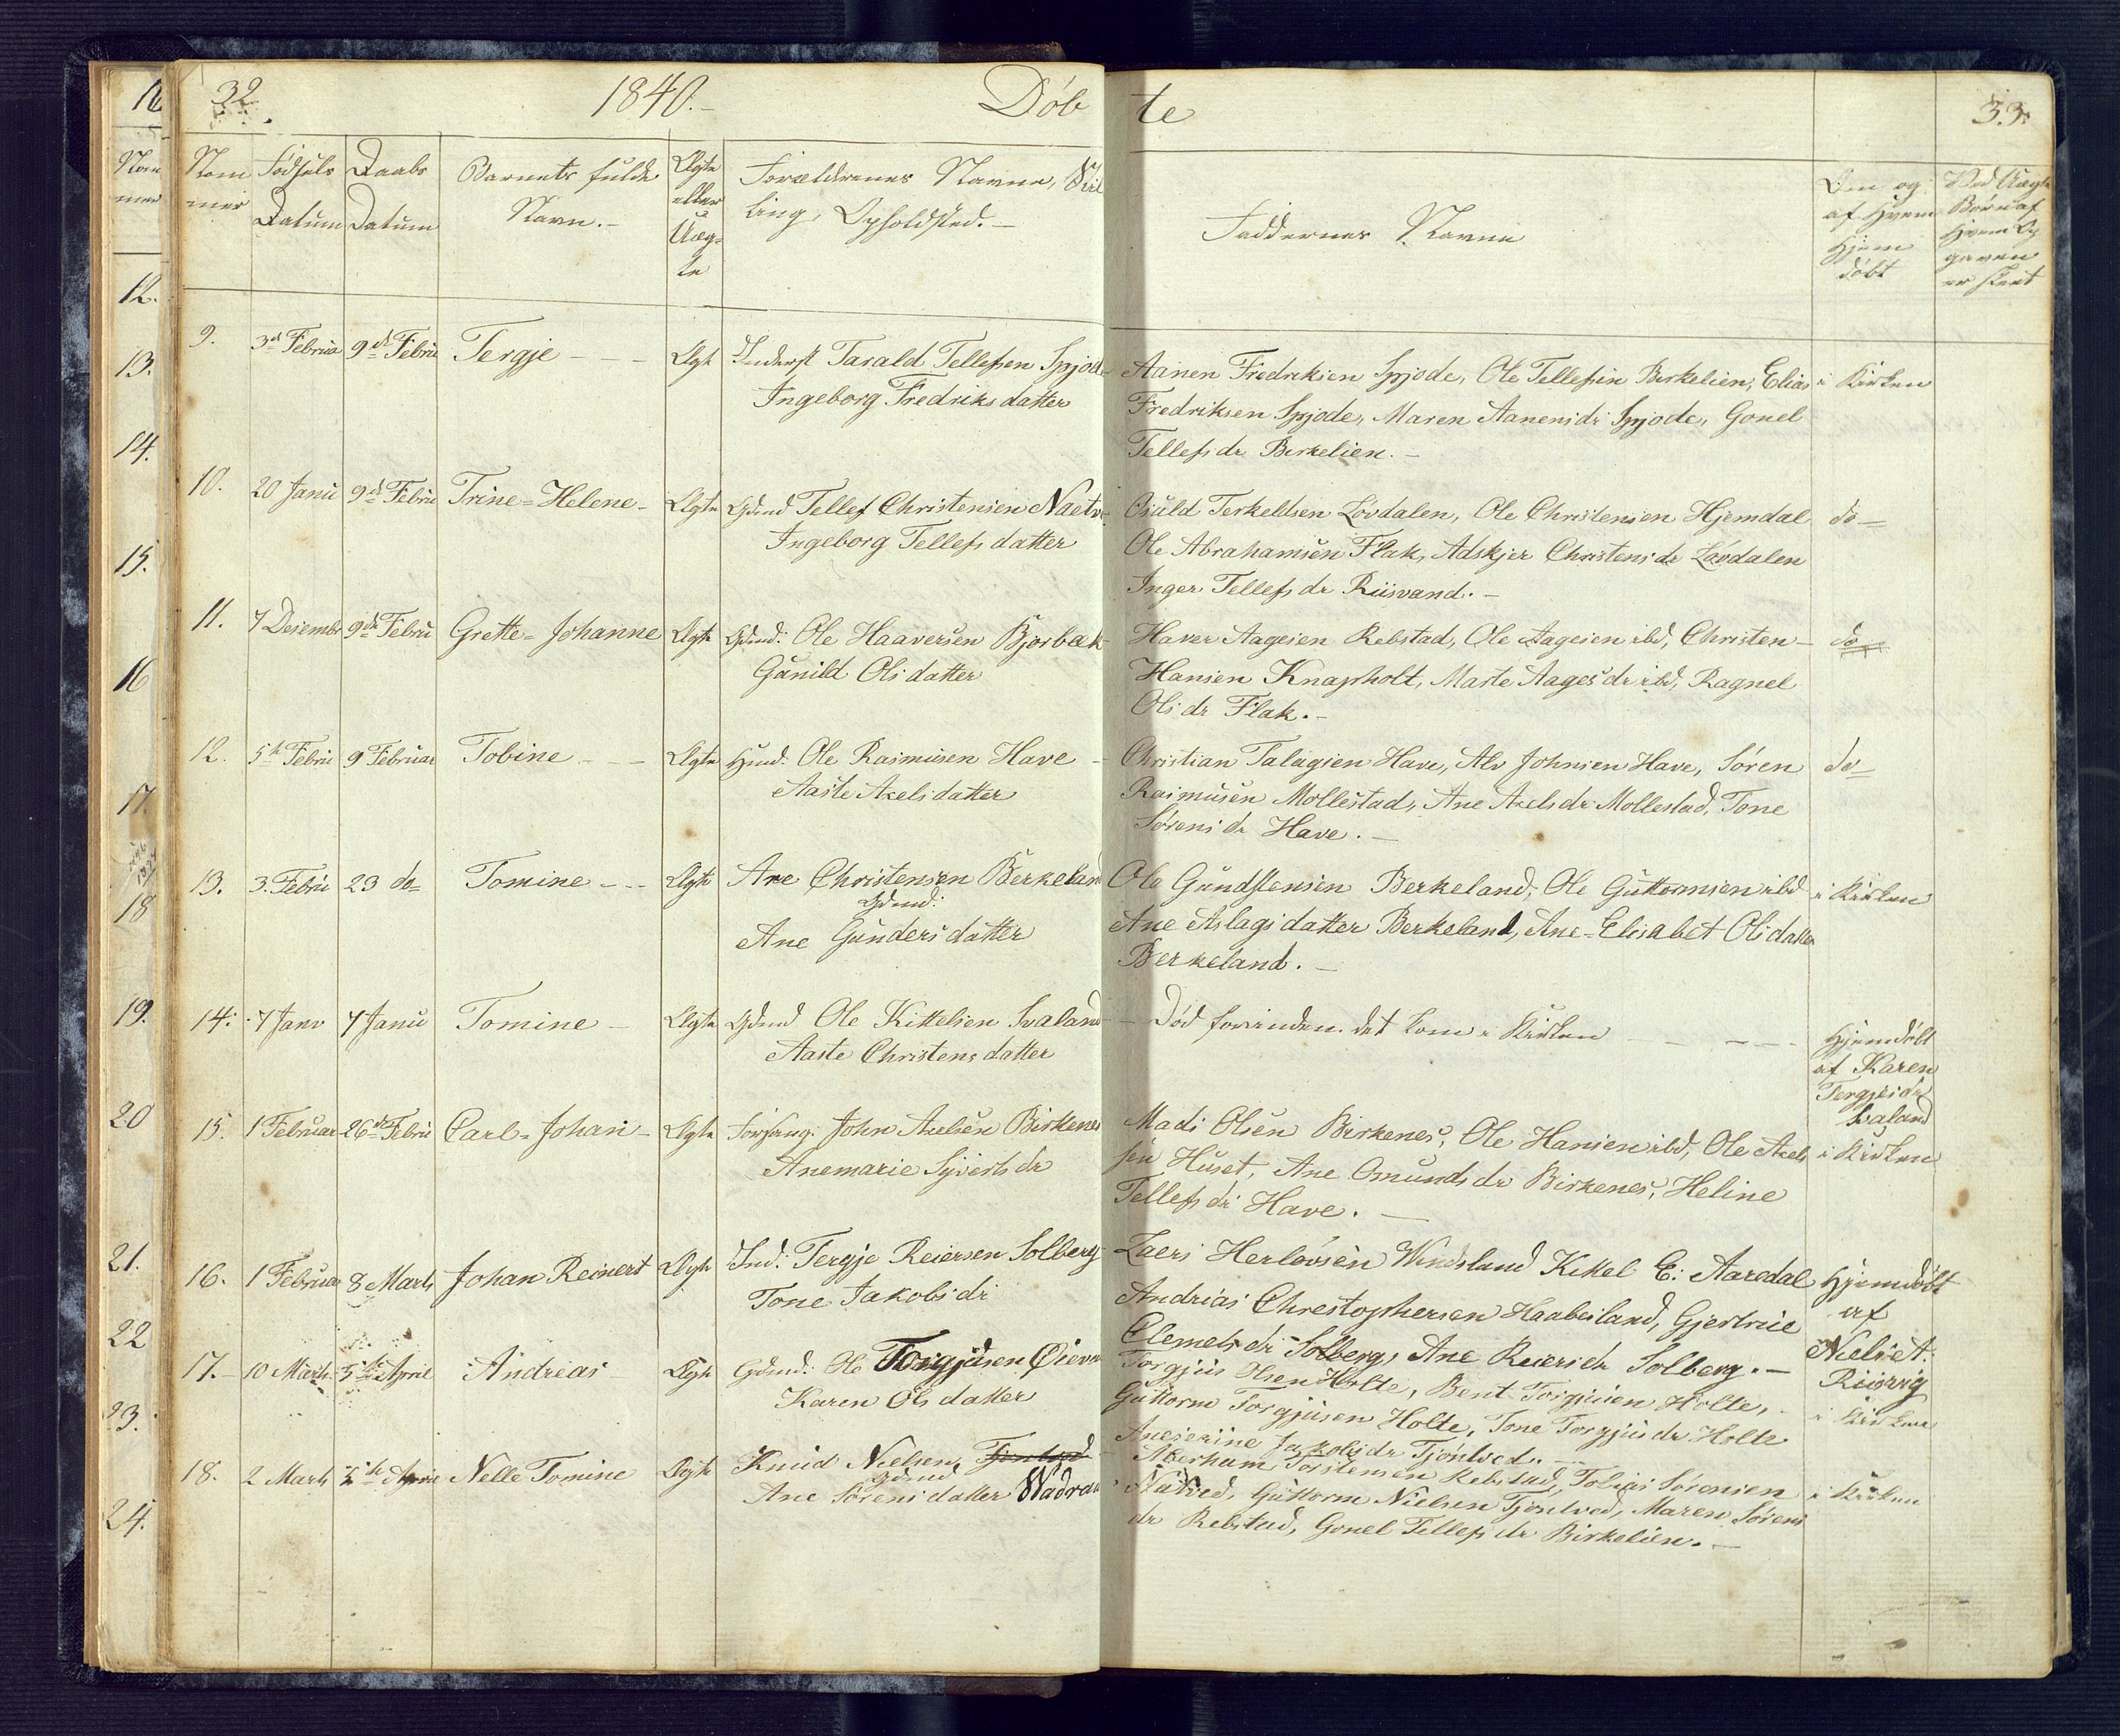 32
1840.-
Döb
te
33.
Nom
mer
Födsels
Datum
Daabs
Datum
Barnets fulde
Navn.-
Ægte
eller
Uæg-
te
Forældrenes Navne, Stil
ling, Opholdsted.-
Faddernes Navne
Om og
af Hvem
Hjem
döbt
Ved Uægte
Börn af
Hvem Op
gaven
er skeet
9. 3d Februa 9d Febru Tergje - - - Ægt Inderst Tarald Tellefsen Spjode
Ingeborg Fredriksdatter
Aanen Fredriksen Spjode, Ole Tellefsen Berkelien, Elias i Kirken
Fredriksen Spjode, Maren Aanensdr Spjode, Gonel
Tellefsdr Berkelien.-
10. 20 Janu 9d Febru Trine-Helene- Ægte Gdmd Tellef Christensen Naetv
Ingeborg Tellefsdatter
Osuld Terkeldsen Lövdalen, Ole Christensen Hjemdal do-
Ole Abrahamsen Flak, Adskjer Christensdr Lövdalen
Inger Tellefsdr Riisvand.-
11. 7 Desembr 9de Febru Grette-Johanne Ægte Gdmd: Ole Haaversen Bjorbak
Gunild Olsdatter
Haver Aagesen Rebstad, Ole Aagesen ibd, Christen- do
Hansen Knapholt, Marte Aagesdr ibd, Ragnel
Olsdr Flak.-
12. 5te Febru 9 Februar Tobine - - - Ægte Husmd: Ole Rasmusen Have -
Aaste Axelsdatter
Christian Talagsen Have, Alv Johnsen Have, Sören do
Rasmusen Mollestad, Ane Axelsdr Mollestad, Tone
Sörensdr Have.-
13. 3. Febru 23 do= Tomine - - - Ægte Are Christensen Berkeland
Gdmd:
Ane Gundersdatter
Ole Gundstensen Berkeland, Ole Guttormsen ibd i Kirken
Ane Aslagsdatter Berkeland, Ane-Elisabet Olsdatter
Berkeland.-
14. 7 Janv 7 Janu Tomine - Ægte Gdmd Ole Kittelsen Svaland
Aaste Christensdatter
- Död forinden det kom i Kirken - - - -
Hjemdöbt
af Karen
Tergjesdr
Svaland
15. 1 Februar 26de Febru Carl-Johan- Ægte John Axelsen Birkenes
Anemarie Syvertsdr
Mads Olsen Birkenes, Ole Hansen ibd, Ole Axels i Kirken
sen Huset, Ane Omundsdr Birkenes, Heline
Tellefsdr Have.-
16. 1 Februar 8 Marts Johan Reinert Ægte Ind: Tergje Reiersen Solberg
Tone Jakobsdr
Laers Herlovsen Windsland Kittel E: Aaredal
Andrias Chrestophersen Haabesland, Gjertrue
Clemetsdr Solberg, Ane Reiersdr Solberg.-
Hjemdöbt
af
Niels A:
17.- 10 Marts 5te April Andreas Ægte Gdmd: Ole Torgjusen
Karen Olsdatter
Torgjus Olsen Holte, Bent Torgjusen Holte,-
Guttorm Torgjusen Holte, Tone Torgjusdr Holte i Kirken
Jakobsdr Tjöntved.-
18. 2 Marts 5te April Nelle Tomine Ægte Knud Nielsen Tjöntved
Gdmd
Ane Sörensdatter
Aberham Torstensen Rebstad, Tobias Sörensen
Natved, Guttorm Nielsen Tjöntved, Maren Sörens i Kirken
dr Rebstad, Gonel Tellefsdr Birkelien.-
16
Nom
mer
12.
13.
14.
15.
16
17.
18
19.
20
21.
22
23.
24.